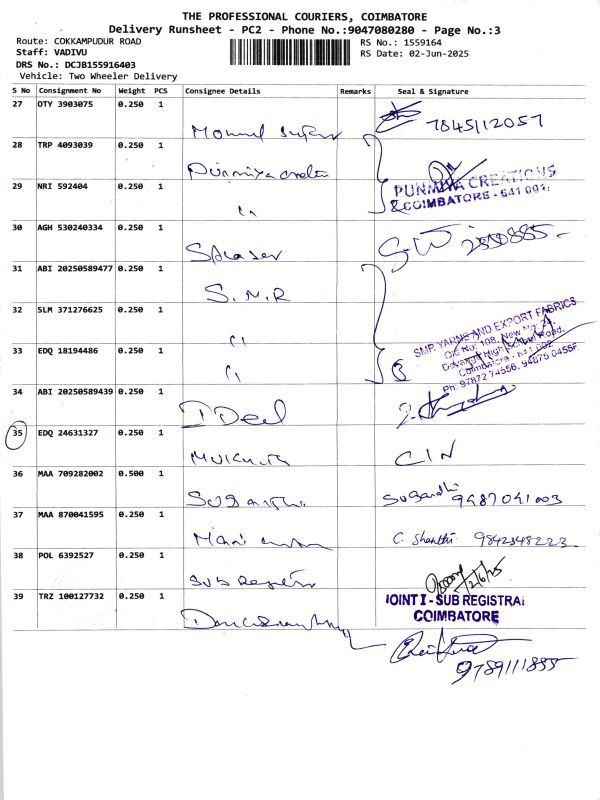 THE PROFESSIONAL COURIERS, COIMBATORE
Delivery Runsheet - PC2 - Phone No.:9047080280 - Page No.:3
Route: COKKAMPUDUR ROAD
RS No.: 1559164
Staff: VADIVU
RS Date: 02-Jun-2025
DRS No.: DCJB155916403
Vehicle: Two Wheeler Delivery
S No Consignment No Weight PCS Consignee Details Remarks Seal & Signature
27 OTY 3903075 0.250 1
7845112057
28 TRP 4093039 0.250 1
Punmiya
PUNMIYA CREATIONS
COIMBATORE - 641 001.
29 NRI 592404 0.250 1
30 AGH 530240334 0.250 1
31 ABI 20250589477 0.250 1
S.M.R
32 SLM 371276625 0.250 1
SMR YARNS AND EXPORT FABRICS
Old No: 108, New No:
High Road,
Coimbatore
Ph: 97872 74556, 94875 04556
33 EDQ 18194486 0.250 1
3
34 ABI 20250589439 0.250 1
I Deel
35 EDQ 24631327 0.250 1
CIN
36 MAA 709282002 0.500 1
Sugandhi 9487041003
37 MAA 870041595 0.250 1
Mani
C. Shanthi 9842348223
38 POL 6392527 0.250 1
Sub
2/6/25
JOINT I - SUB REGISTRAR
COIMBATORE
39 TRZ 100127732 0.250 1
9789111855